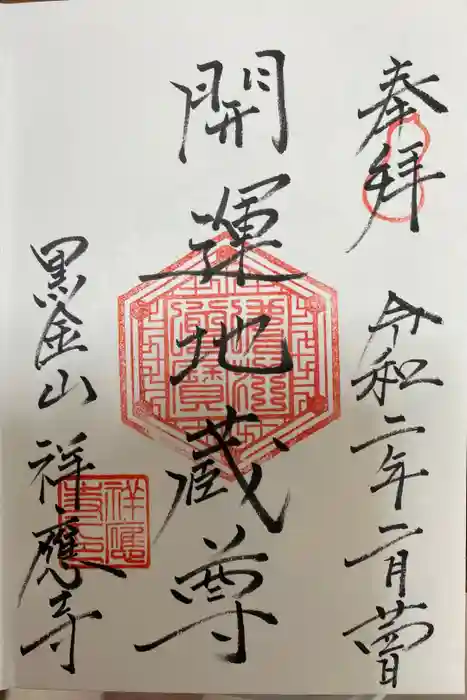 奉拝
令和二年二月
開運地蔵尊
黒金山
祥應寺